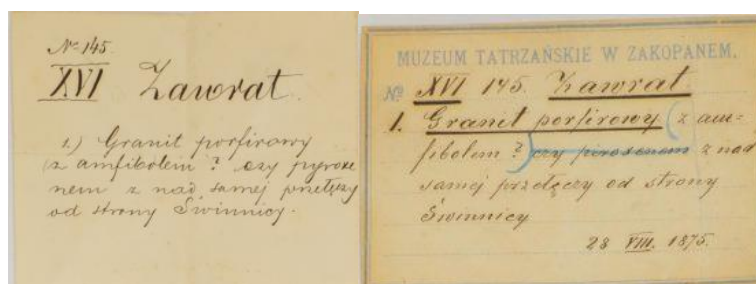 № 145.
XVI Zawrat.
1.) Granit porfirowy
(z amfibolem ? czy pyroxe
nem z nad samej przełęczy
od strony Świnnicy.
MUZEUM TATRZAŃSKIE W ZAKOPANEM.
№ XVI 145. Zawrat.
1. Granit porfirowy (z am-
fibolem ?) czy piroxenem z nad
samej przełęczy od strony
Świnnicy
28 VIII. 1875.